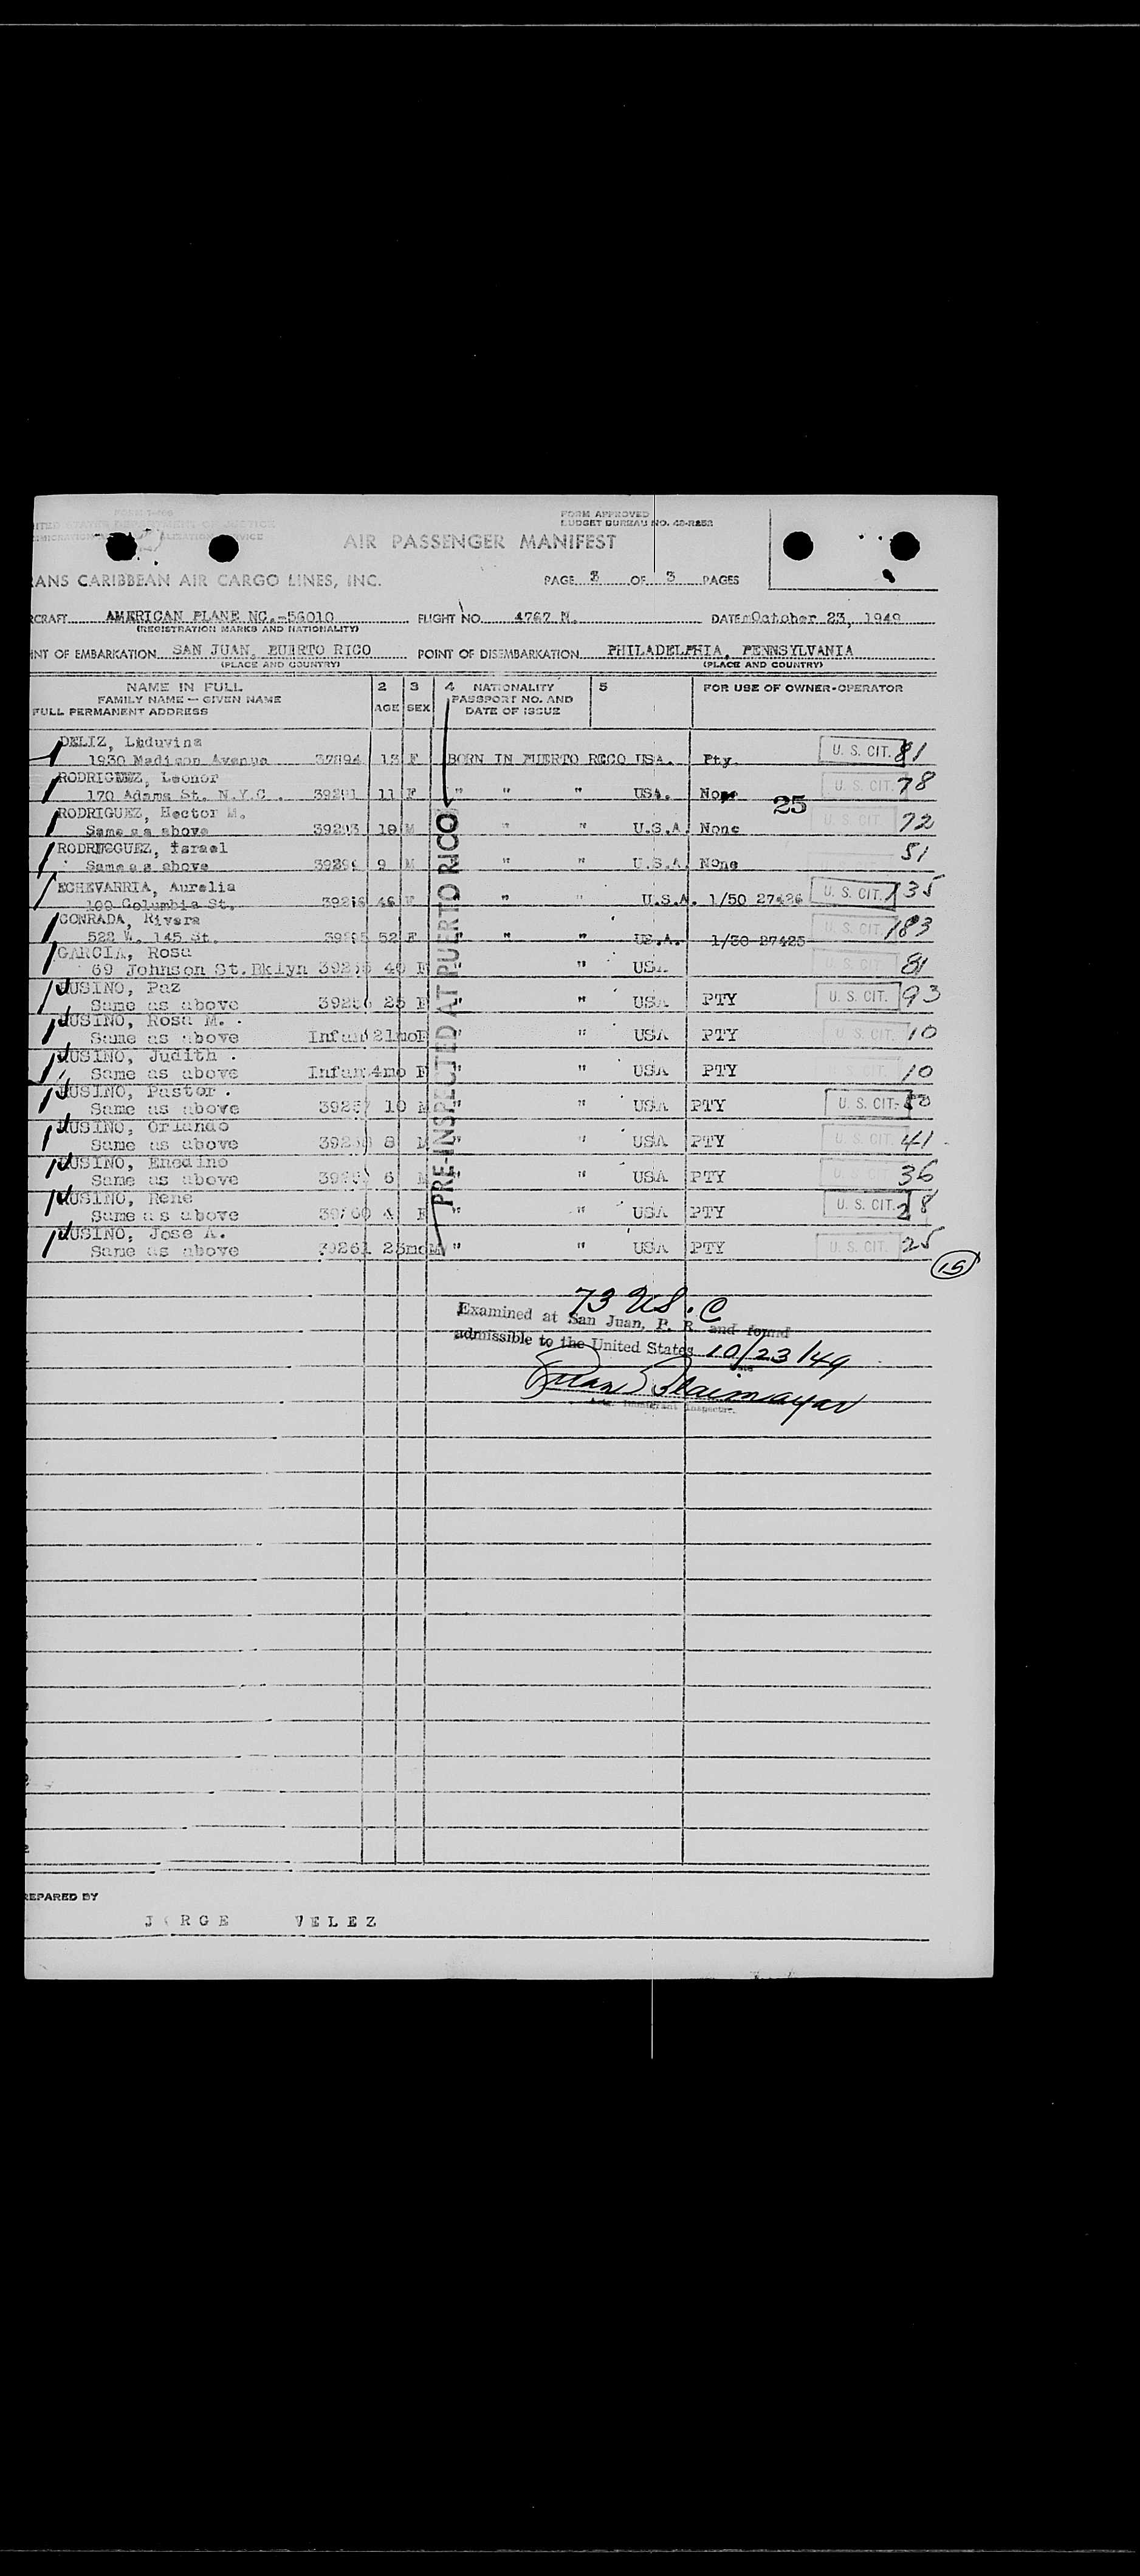 FORM APPROVED
BUDGET BUREAU NO. 43-R252
AIR PASSENGER MANIFEST
RANS CARIBBEAN AIR CARGO LINES, INC.
PAGE 3 OF 3 PAGES
RCRAFT AMERICAN PLANE NC.-56010 FLIGHT NO. 4767 N. DATE October 23, 1949
(REGISTRATION MARKS AND NATIONALITY)
INT OF EMBARKATION SAN JUAN, PUERTO RICO POINT OF DISEMBARKATION PHILADELPHIA, PENNSYLVANIA
(PLACE AND COUNTRY) (PLACE AND COUNTRY)
NAME IN FULL 2 3 4 NATIONALITY 5 FOR USE OF OWNER-OPERATOR
FAMILY NAME — GIVEN NAME AGE SEX PASSPORT NO. AND
FULL PERMANENT ADDRESS DATE OF ISSUE
DELIZ, Luduvina
1950 Madison Avenue 37894 13 F BORN IN PUERTO RICO USA. Pty U. S. CIT. 81
RODRIGUEZ, Leonor
170 Adams St. N.Y.C. 39291 11 F " " " USA. None U. S. CIT. 78
25
RODRIGUEZ, Hector M.
Same as above 10 M " " U.S.A. None U. S. CIT. 72
RODRIGUEZ, Israel
Same as above 9 M " " U.S.A. None 51
ECHEVARRIA, Aurelia
109 Columbia St. 46 F " " U.S.A. 1/50 27426 U. S. CIT. 135
CONRADA, Rivera
522 W. 145 St. 52 F " " " 1/50 27425 U. S. CIT. 183
GARCIA, Rosa
69 Johnson St. Bklyn 40 F " USA U. S. CIT. 81
RUSINO, Paz
Same as above 25 F " " USA PTY U. S. CIT. 93
RUSINO, Rosa M.
Same as above Infan 21mo F " " USA PTY U. S. CIT. 10
RUSINO, Judith
Same as above Infan 4mo F " USA PTY 10
RUSINO, Pastor
Same as above 10 M " " USA PTY U. S. CIT.
RUSINO, Orlando
Same as above 8 M " " USA PTY U. S. CIT. 41
RUSINO, Enedino
Same as above 6 M " USA PTY U. S. CIT. 36
RUSINO, Rene
Same as above 4 " " USA PTY U. S. CIT. 28
RUSINO, Jose A.
Same as above 39261 25mo M " " USA PTY U. S. CIT. 25
15
PRE-INSPECTED AT PUERTO RICO
73 U.S.C
Examined at San Juan, P. R. and found
admissible to the United States 10/23/49
Immigrant Inspector
REPARED BY
JORGE VELEZ